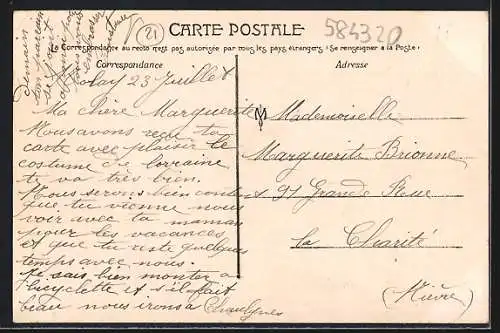 CARTE POSTALE
(21)
584320
La Correspondance au recto n'est pas autorisée par tous les pays étrangers (Se renseigner à la Poste)
Correspondance
Adresse
Demain
se
nous
embrasser
23 Juillet
Ma chère Marguerite
Nous avons reçu ta
carte avec plaisir le
costume de lorraine
te va très bien.
Nous serons bien contents
que tu vienne nous
voir avec ta maman
pour les vacances
et que tu reste quelques
temps avec nous.
Je sais bien monter a
bicyclette et s'il fait
beau nous irons a Chaulgnes
Mademoiselle
Marguerite Brionne
91 Grande Rue
la Charité
(Nièvre)